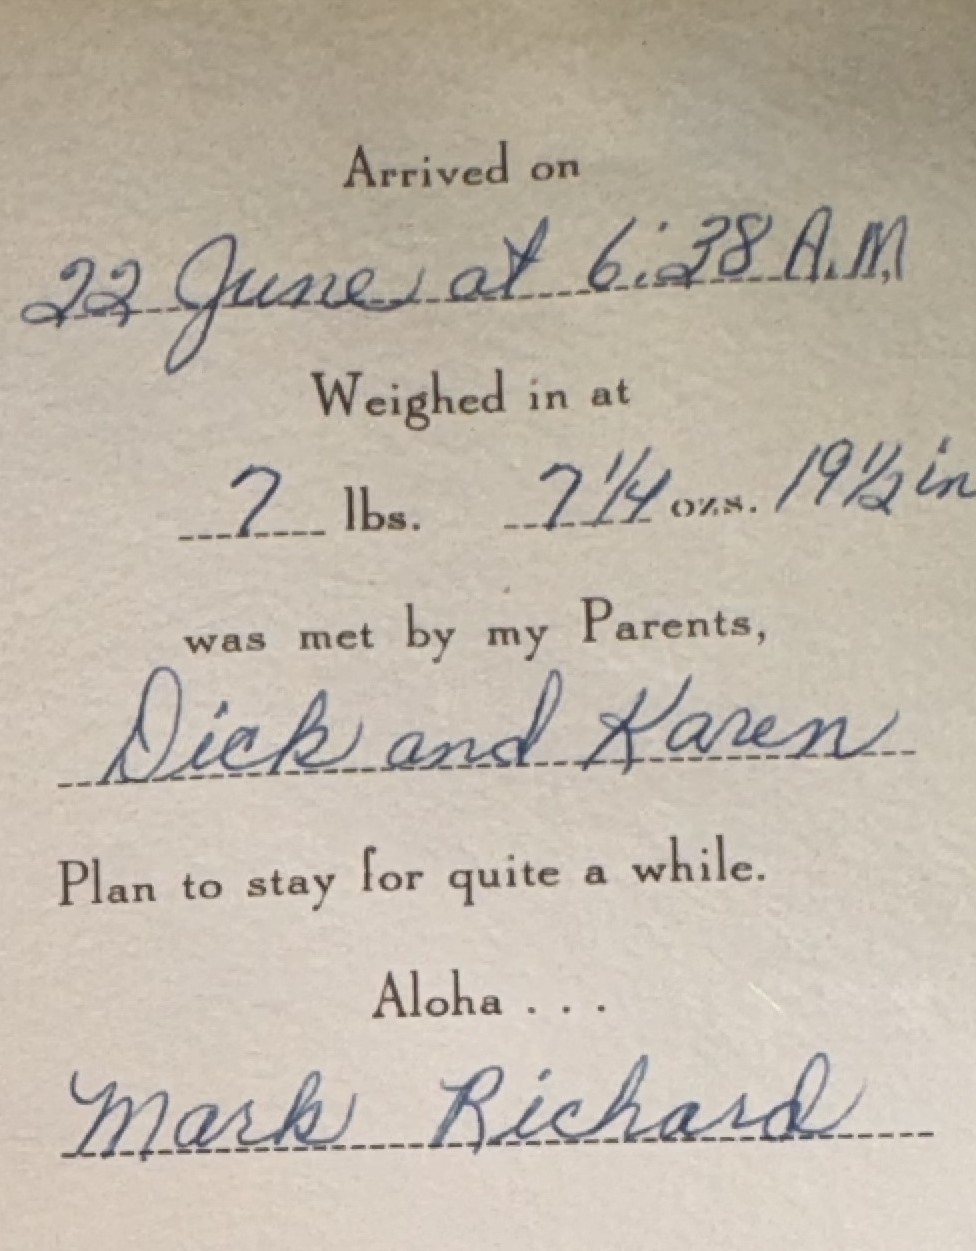 Arrived on
22 June at 6:38 A.M.
Weighed in at
7 lbs. 7 1/4 ozs. 19 1/2 in
was met by my Parents,
Dick and Karen
Plan to stay for quite a while.
Aloha . . .
Mark Richard